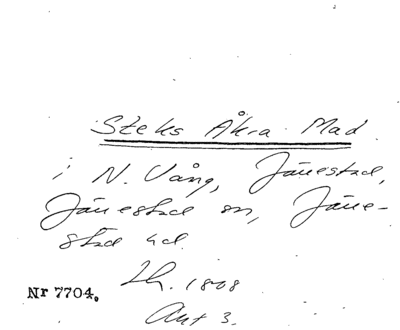 Steks Åkra Mad
i N. Vång, Jänestad,
Jänestad sn, Jäne-
stad hd.
Lh. 1808
Akt 3.
Nr 7704.